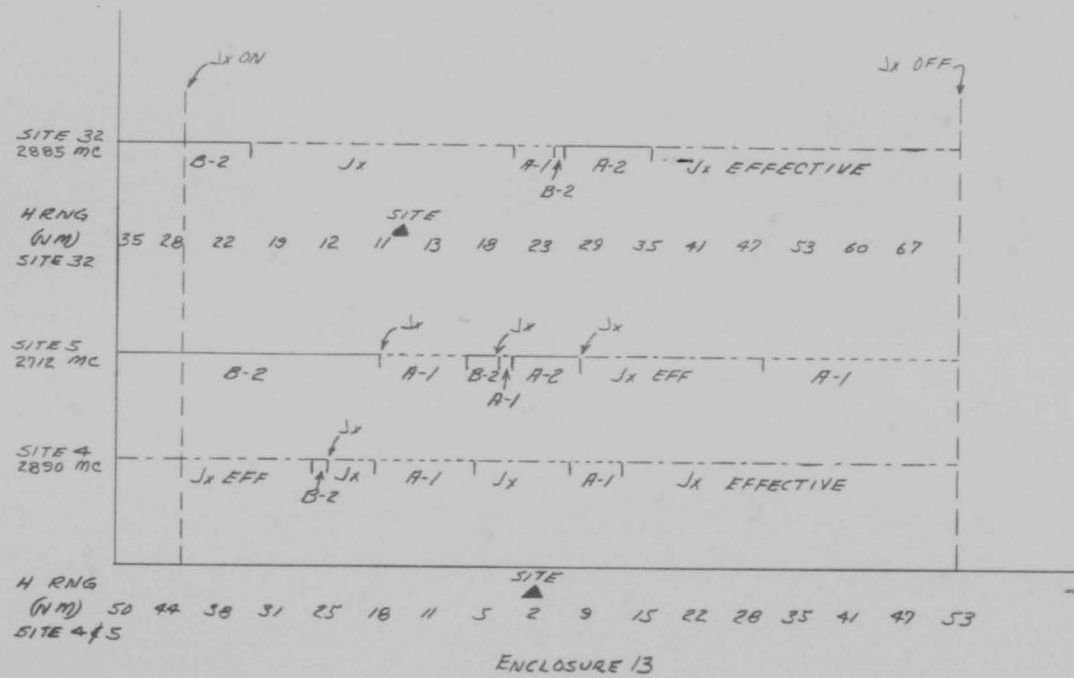 Jx ON
Jx OFF
SITE 32
2885 MC
B-2 Jx A-1 A-2 Jx EFFECTIVE
B-2
SITE
H RNG
(NM)
SITE 32
35 28 22 19 12 11 13 18 23 29 35 41 47 53 60 67
Jx Jx Jx
SITE 5
2712 MC
B-2 A-1 B-2 A-2 Jx EFF A-1
A-1
Jx
SITE 4
2890 MC
Jx EFF Jx A-1 Jx A-1 Jx EFFECTIVE
B-2
SITE
H RNG
(NM)
SITE 4 & 5
50 44 38 31 25 18 11 5 2 9 15 22 28 35 41 47 53
ENCLOSURE 13